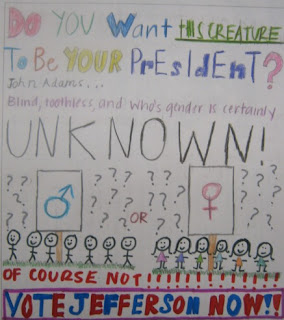 DO YOU Want thiS CREATURE
To Be YOUR PrEsIdEnT?
John Adams...
Blind, toothless, and who's gender is certainly
UNKNOWN!
? ? ? ? ? ? ? ? ? ?
OR
OF COURSE NOT!!!!!!!!!!!!
VOTE JEFFERSON NOW!!